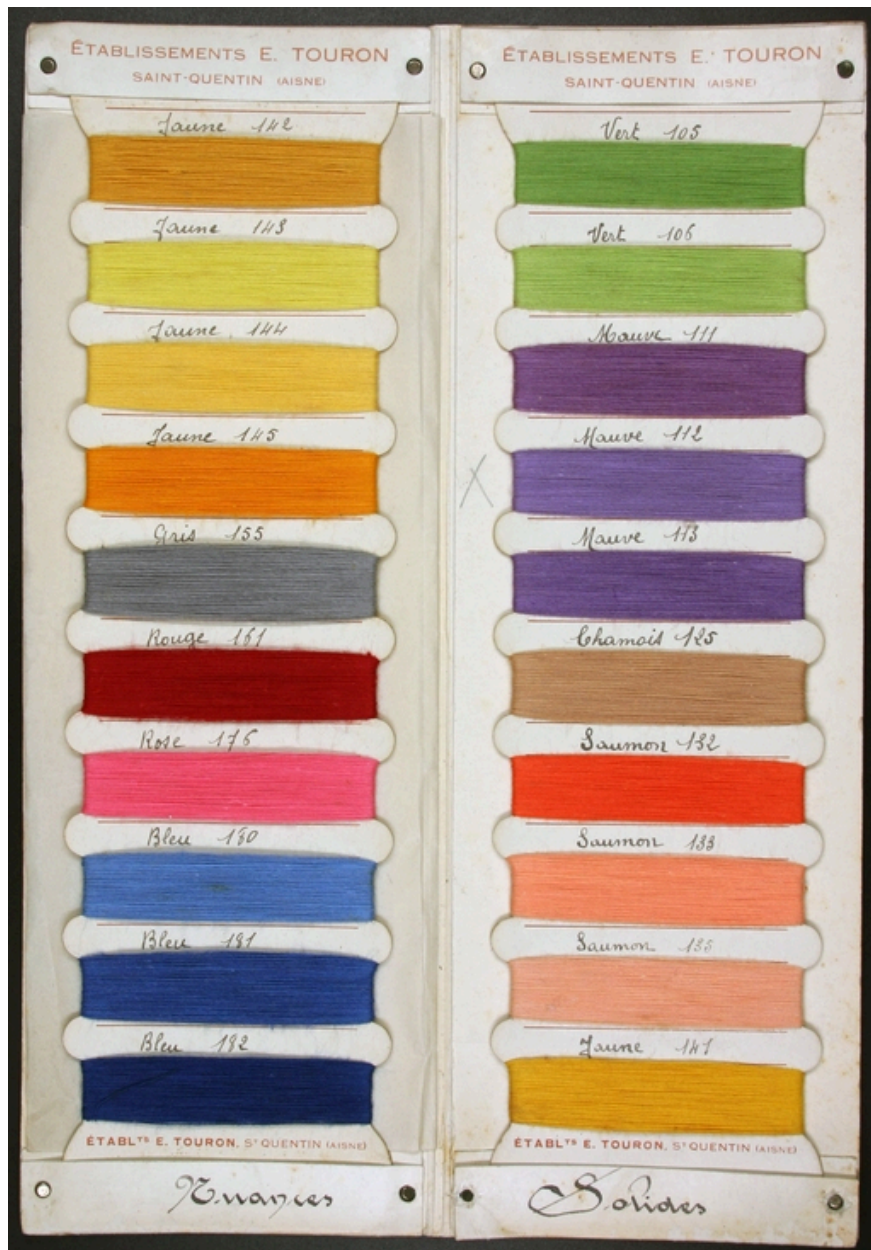 ÉTABLISSEMENTS E. TOURON
SAINT-QUENTIN (AISNE)
Jaune 142
Jaune 143
Jaune 144
Jaune 145
Gris 155
Rouge 161
Rose 176
Bleu 180
Bleu 181
Bleu 182
ÉTABLTS E. TOURON, ST QUENTIN (AISNE)
Nuances
ÉTABLISSEMENTS E. TOURON
SAINT-QUENTIN (AISNE)
Vert 105
Vert 106
Mauve 111
Mauve 112
X
Mauve 113
Chamois 125
Saumon 132
Saumon 133
Saumon 135
Jaune 141
ÉTABLTS E. TOURON, ST QUENTIN (AISNE)
Solides